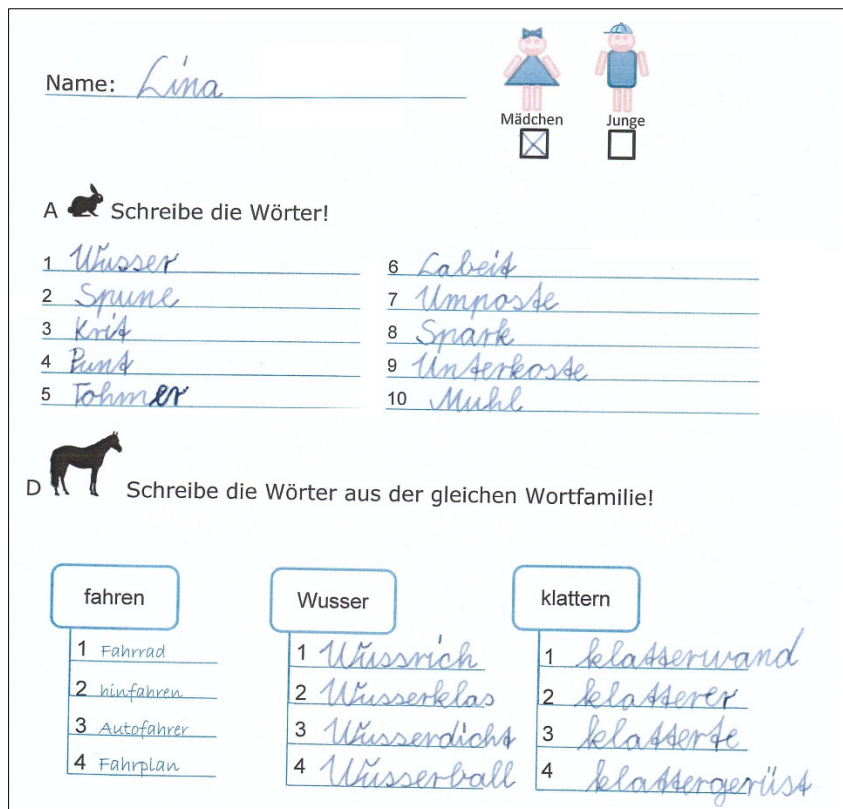 Name: Lina
Mädchen Junge
A Schreibe die Wörter!
1 Wusser
2 Spune
3 Krit
4 Punt
5 Tohmer
6 Labeit
7 Umposte
8 Spark
9 Unterkoste
10 Muhl
D Schreibe die Wörter aus der gleichen Wortfamilie!
fahren
1 Fahrrad
2 hinfahren
3 Autofahrer
4 Fahrplan
Wusser
1 Wussrich
2 Wusserklas
3 Wusserdicht
4 Wusserball
klattern
1 klatterwand
2 klatterer
3 klatterte
4 klattergerüst